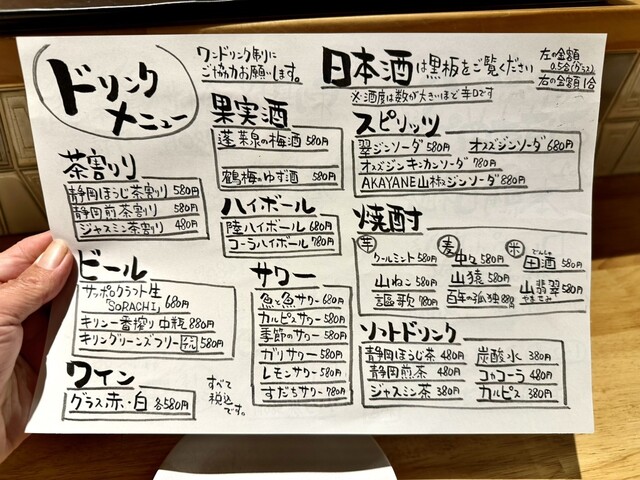 ドリンク
メニュー
ワンドリンク制に
ご協力お願いします。
日本酒は黒板をご覧ください
左の金額
0.5合(グラス)
右の金額1合
※酒度は数が大きいほど辛口です
茶割り
静岡ほうじ茶割り 580円
静岡煎茶割り 580円
ジャスミン茶割り 480円
ビール
サッポロクラフト生
「SORACHI」 680円
キリン一番搾り 中瓶 880円
キリングリーンズフリー 580円
ワイン
グラス 赤・白 各580円
すべて
税込
です。
果実酒
蓬莱泉の梅酒 580円
鶴梅のゆず酒 580円
ハイボール
陸ハイボール 680円
コーラハイボール 780円
サワー
魚と魚サワー 680円
カルピスサワー 580円
季節のサワー 580円
ガリサワー 580円
レモンサワー 580円
すだちサワー 780円
スピリッツ
翠ジンソーダ 580円 オスズジンソーダ 680円
オスズジンキンカンソーダ 780円
AKAYANE山椒ジンソーダ 880円
焼酎
芋
クールミント 580円
山ねこ 580円
謳歌 780円
麦
中々 580円
山猿 580円
百年の孤独 880円
米
でんしゅ
田酒 580円
山翡翠 580円
やませみ
ソフトドリンク
静岡ほうじ茶 480円 炭酸水 380円
静岡煎茶 480円 コカコーラ 380円
ジャスミン茶 380円 カルピス 380円